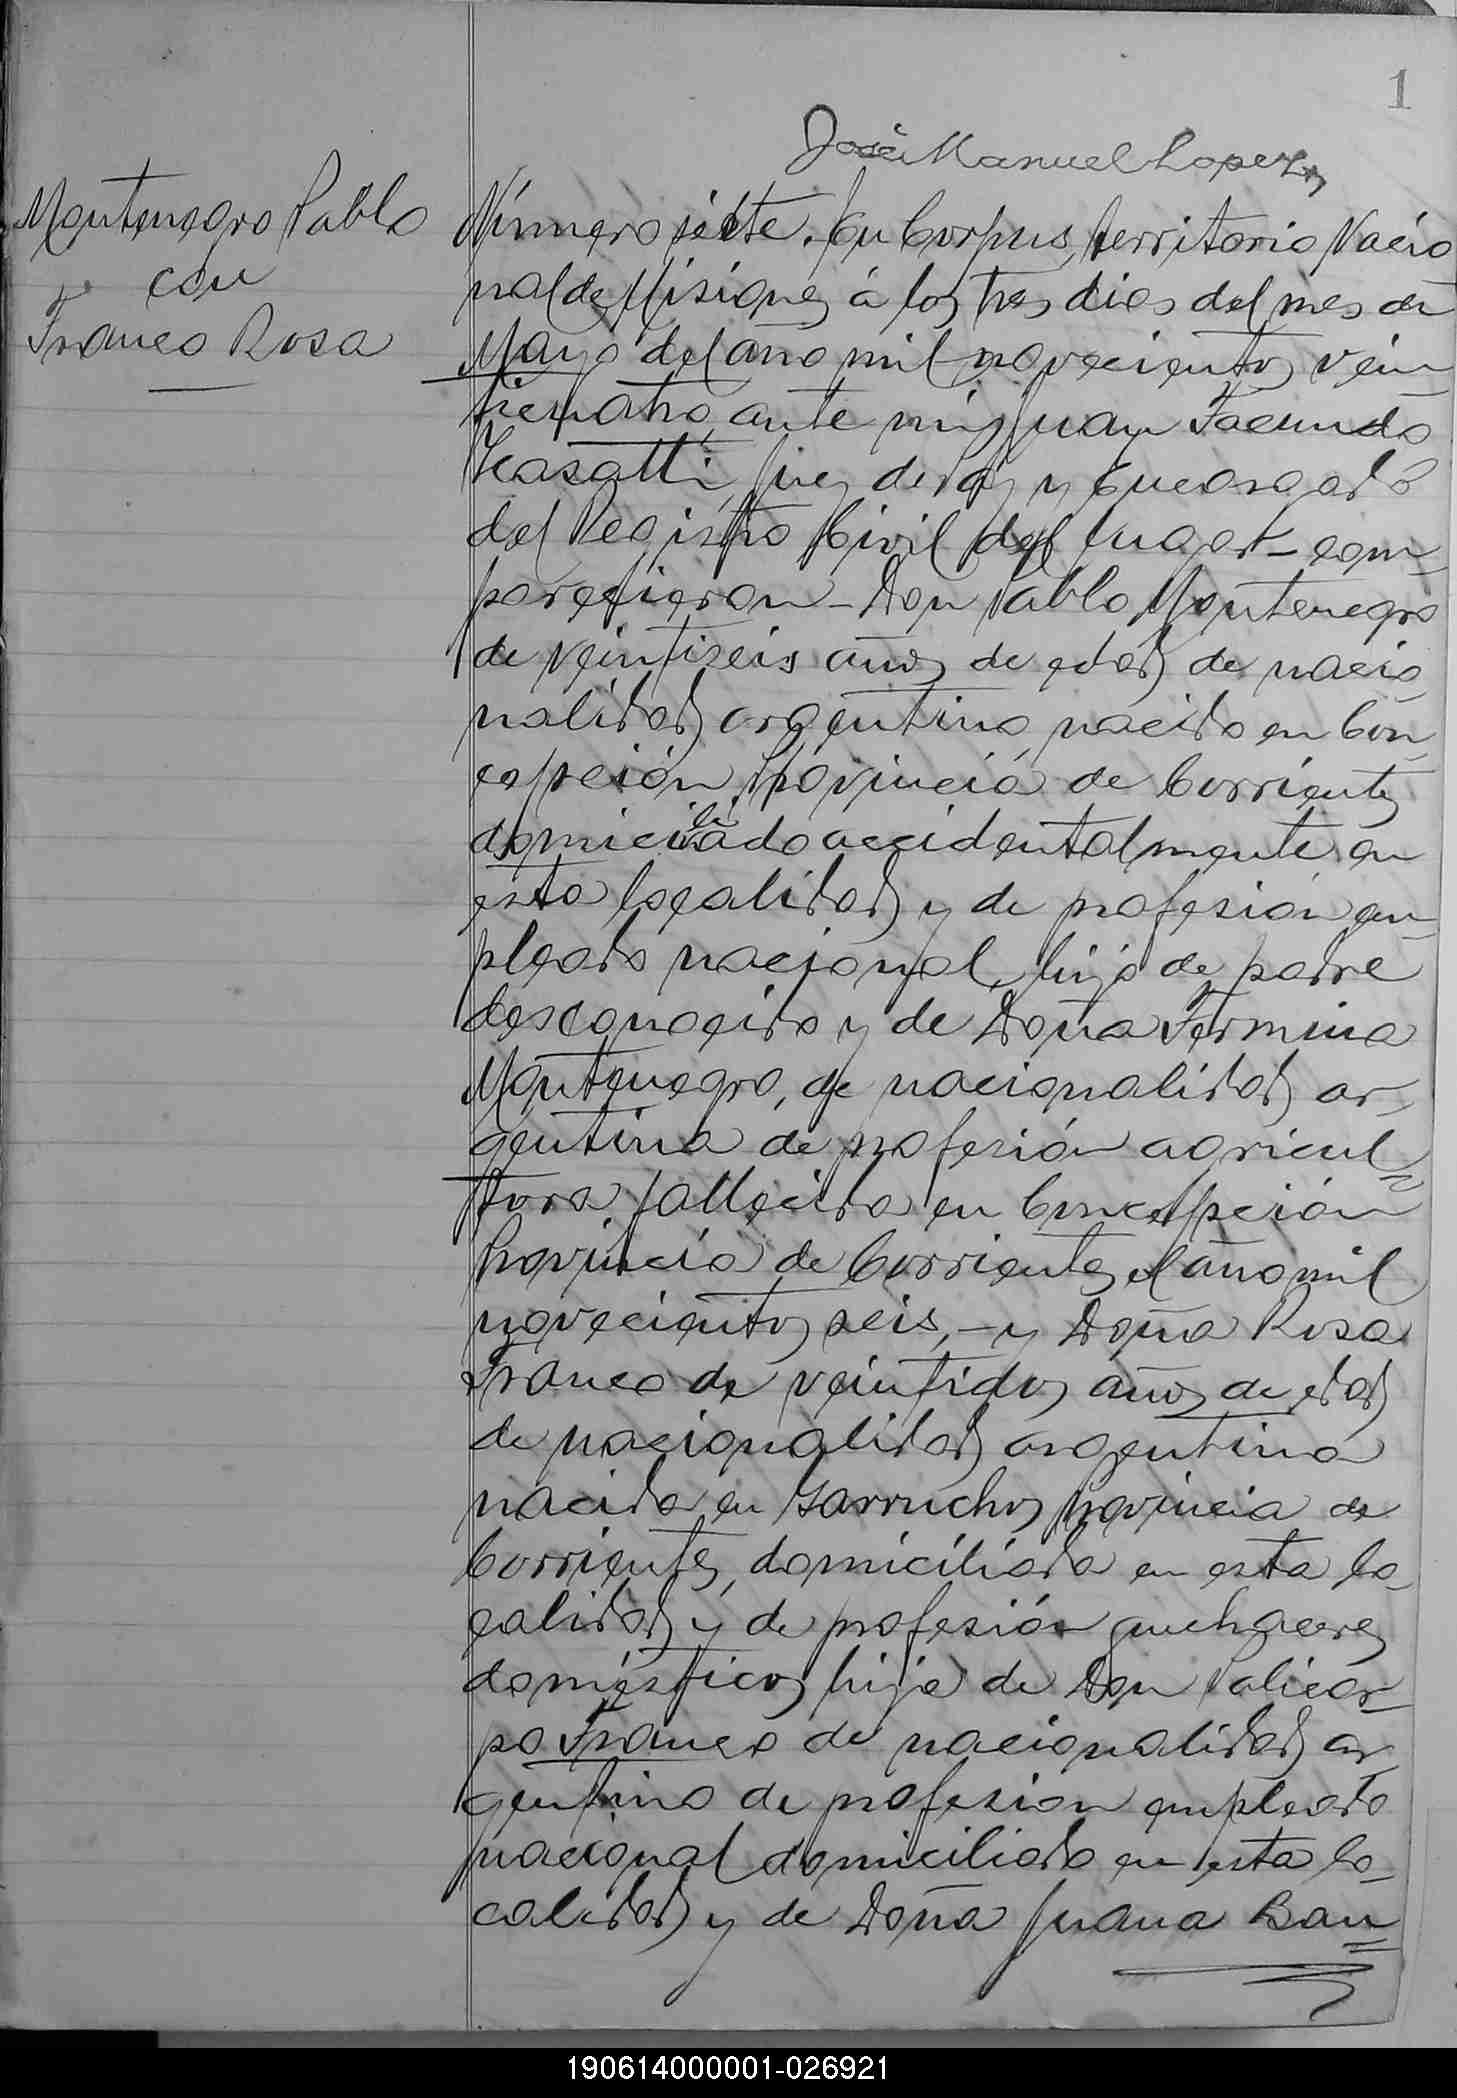 1
José Manuel Lopez
Montenegro Pablo
con
Franco Rosa
Número siete. En Corpus, territorio Nacio
nal de Misiones á los tres dias del mes de
Mayo del año mil novecientos vein
ticuatro, ante mi, Juan Facundo
Casatti, Juez de Paz y Encargado
del Registro Civil del lugar – com-
parecieron – Don Pablo Montenegro
de veintiseis años de edad de nacio-
nalidad argentino, nacido en Con-
cepción, Provincia de Corrientes
domiciliado accidentalmente en
esta localidad y de profesión em-
pleado nacional, hijo de padre
desconocido y de Doña Fermina
Montenegro, de nacionalidad ar-
gentina de profesión agricul-
tora fallecida en Concepción
Provincia de Corrientes el año mil
novecientos seis, – y Doña Rosa
Franco de veintidos años de edad
de nacionalidad argentina
nacida en Garruchos Provincia de
Corrientes, domiciliada en esta lo-
calidad y de profesión quehaceres
domésticos hija de Don Policar-
po Franco de nacionalidad ar
gentino de profesion empleado
nacional domiciliado en esta lo-
calidad y de Doña Juana Bau=
190614000001-026921